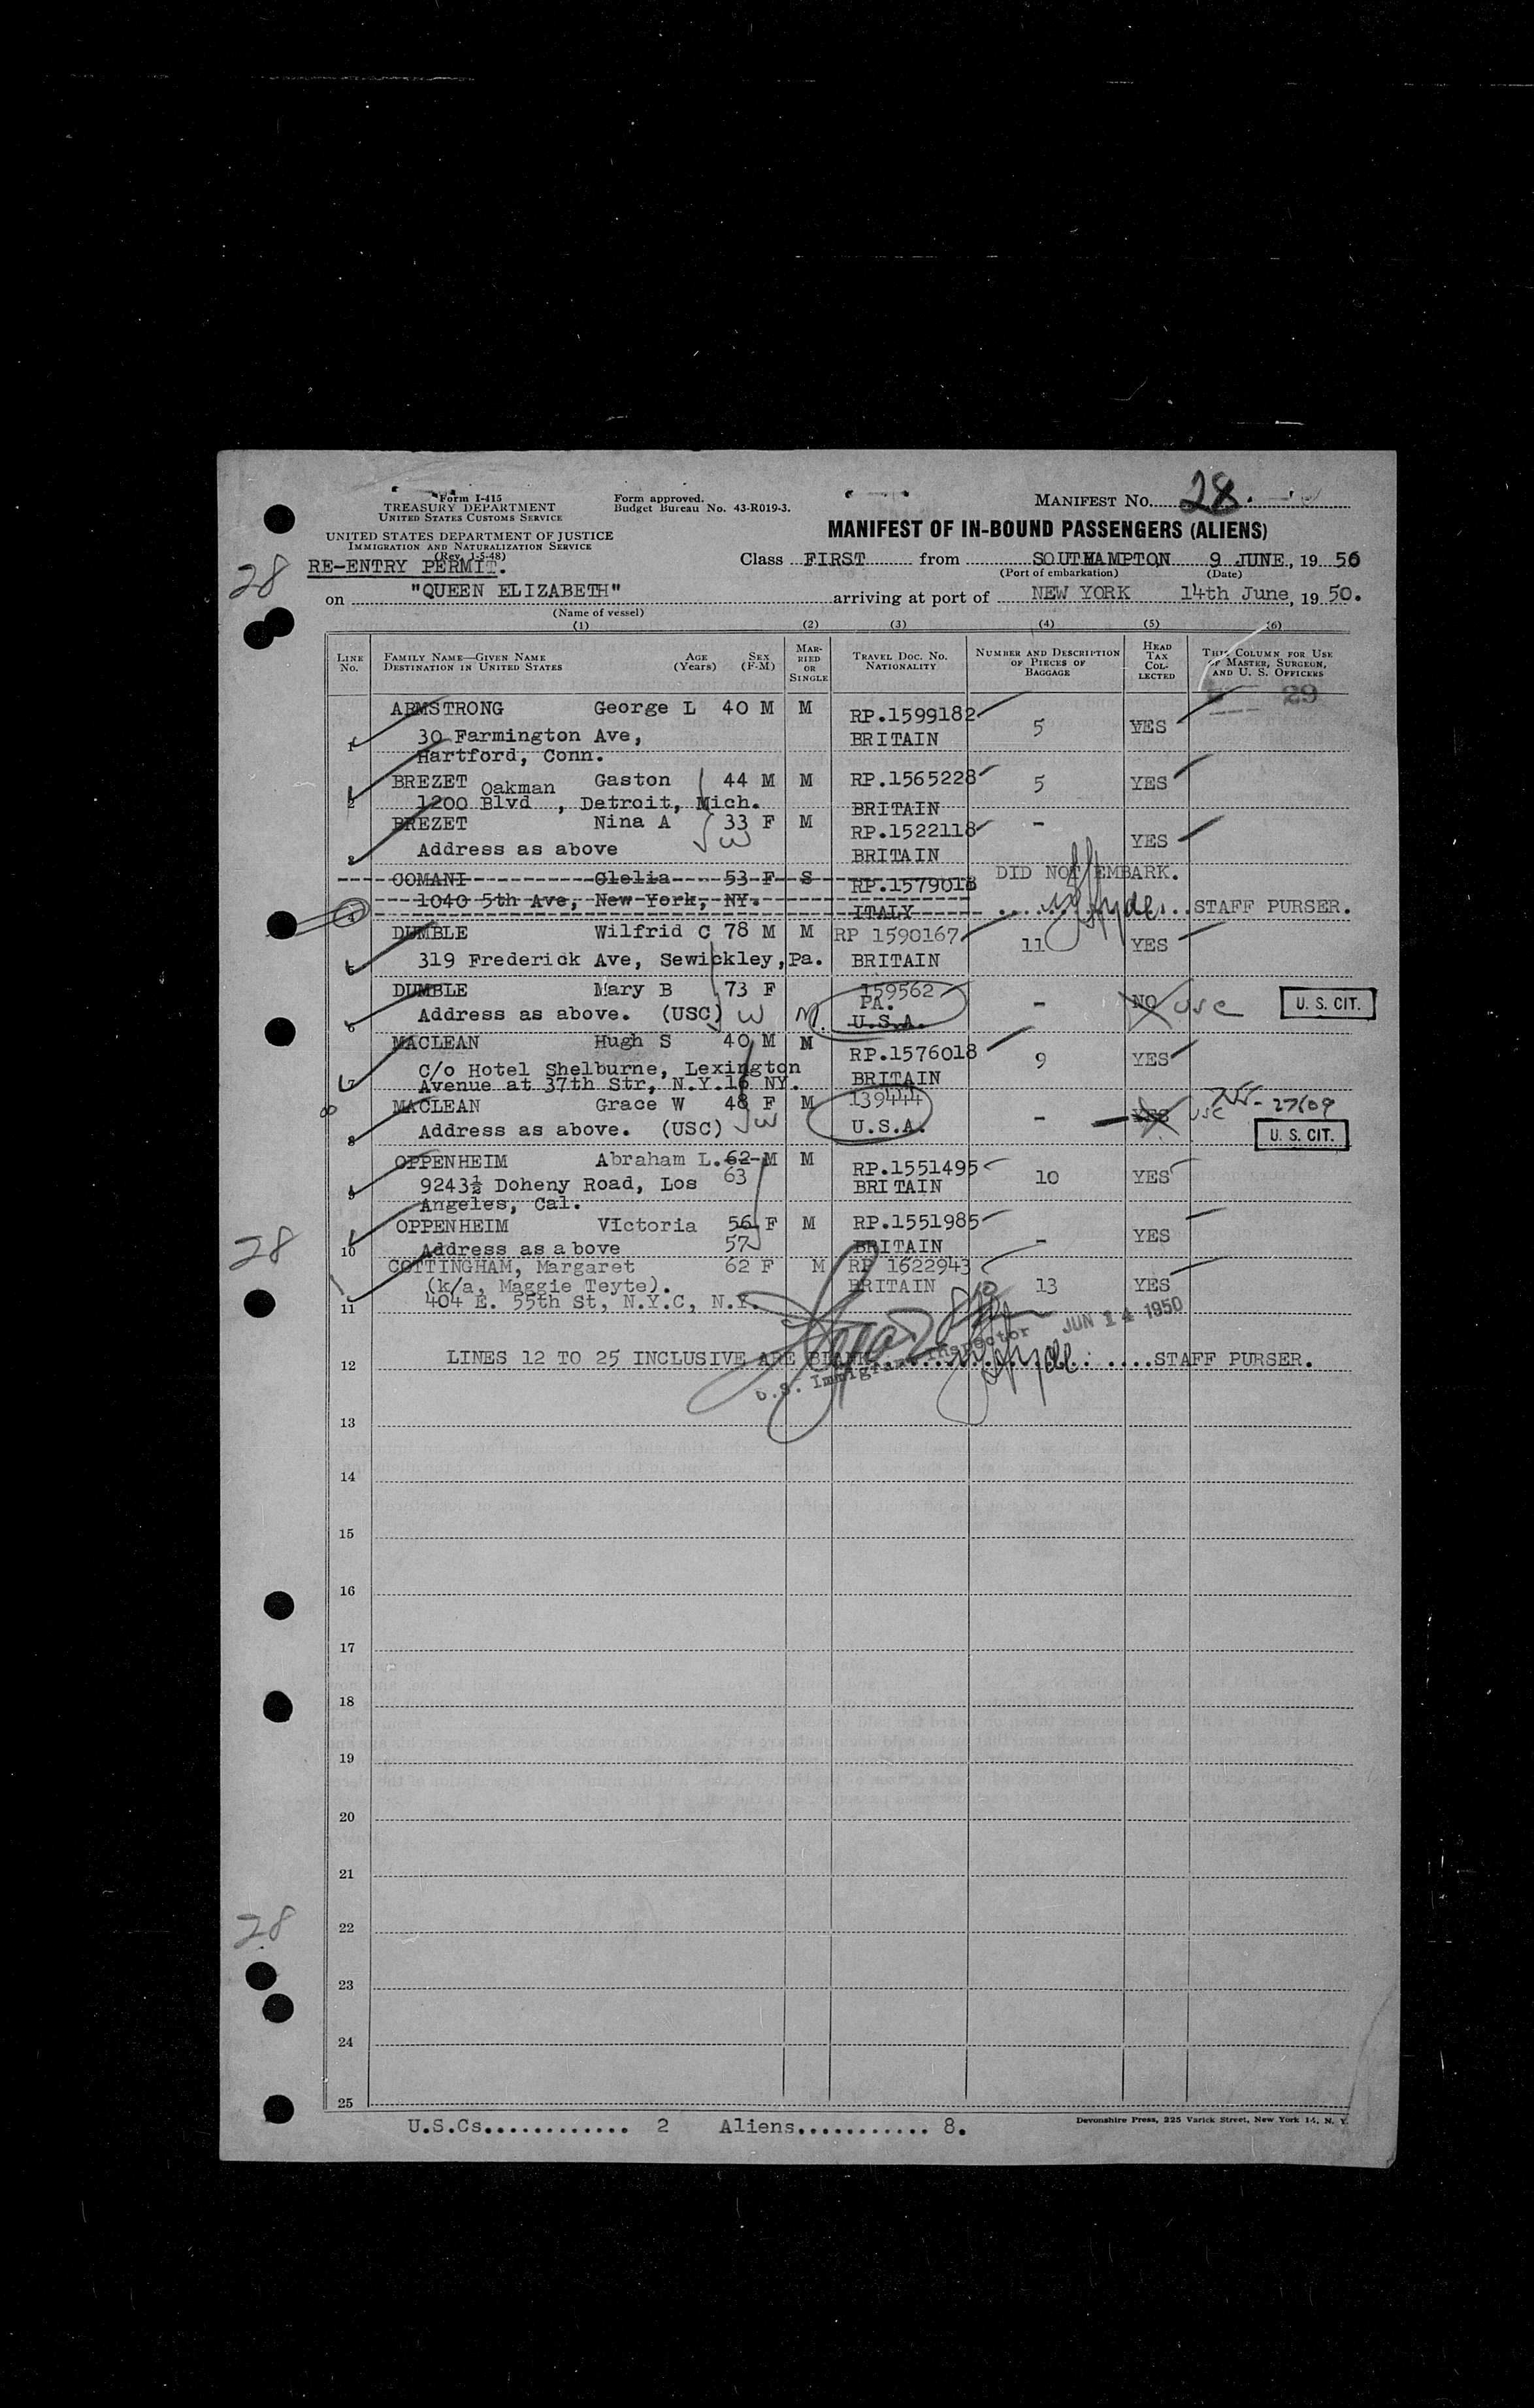 Form I-415
TREASURY DEPARTMENT
UNITED STATES CUSTOMS SERVICE
UNITED STATES DEPARTMENT OF JUSTICE
IMMIGRATION AND NATURALIZATION SERVICE
(Rev. 1-5-48)
RE-ENTRY PERMIT.
Form approved.
Budget Bureau No. 43-R019-3.
MANIFEST NO. 28.
MANIFEST OF IN-BOUND PASSENGERS (ALIENS)
Class FIRST from SOUTHAMPTON 9 JUNE, 19 50
(Port of embarkation) (Date)
28
on "QUEEN ELIZABETH" arriving at port of NEW YORK 14th June, 19 50.
(Name of vessel)
(1) (2) (3) (4) (5) (6)
LINE NO. FAMILY NAME—GIVEN NAME DESTINATION IN UNITED STATES AGE (Years) SEX (F-M) MARRIED OR SINGLE TRAVEL DOC. NO. NATIONALITY NUMBER AND DESCRIPTION OF PIECES OF BAGGAGE HEAD TAX COLLECTED THIS COLUMN FOR USE OF MASTER, SURGEON, AND U. S. OFFICERS
29
ARMSTRONG George L 40 M M RP.1599182 5 YES
1 30 Farmington Ave, BRITAIN
Hartford, Conn.
BREZET Gaston 44 M M RP.1565228 5 YES
Oakman
2 1200 Blvd , Detroit, Mich. BRITAIN
BREZET Nina A 33 F M RP.1522118 - YES
3 Address as above W BRITAIN
COMANI Clelia 53 F S RP.1579018 DID NOT EMBARK.
4 1040 5th Ave, New York, NY. ITALY STAFF PURSER.
DUMBLE Wilfrid C 78 M M RP 1590167 11 YES
5 319 Frederick Ave, Sewickley, Pa. BRITAIN
DUMBLE Mary B 73 F 159562 - NO USC U. S. CIT.
PA.
6 Address as above. (USC) W M. U.S.A.
MACLEAN Hugh S 40 M M RP.1576018 9 YES
7 c/o Hotel Shelburne, Lexington BRITAIN
Avenue at 37th Str, N.Y.16 NY.
8
MACLEAN Grace W 48 F M 139444 - YES USC 27609
8 Address as above. (USC) W U.S.A. U. S. CIT.
OPPENHEIM Abraham L. 62 M M RP.1551495 10 YES
63
9 9243½ Doheny Road, Los BRITAIN
Angeles, Cal.
OPPENHEIM VIctoria 56 F M RP.1551985 - YES
28
10 Address as above 57 BRITAIN
COTTINGHAM, Margaret 62 F M RP 1622943 13 YES
(k/a, Maggie Teyte). BRITAIN
11 404 E. 55th St, N.Y.C, N.Y.
JUN 14 1950
U.S. Immigrant Inspector
12 LINES 12 TO 25 INCLUSIVE ARE BLANK STAFF PURSER.
13
14
15
16
17
18
19
20
21
22
28
23
24
25
U.S.Cs............ 2 Aliens........... 8.
Devonshire Press, 225 Varick Street, New York 14, N. Y.